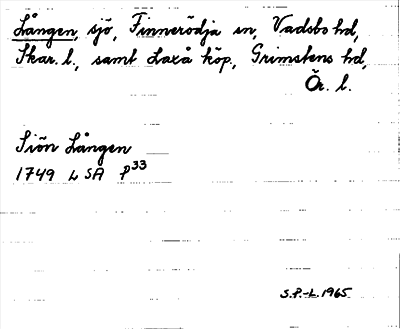 Lången, sjö, Finnerödja sn, Vadsbo hd,
Skar. l., samt Laxå köp., Grimstens hd,
Ör. l.
Siön Lången
1749 LSA P33
S.P.-L. 1965